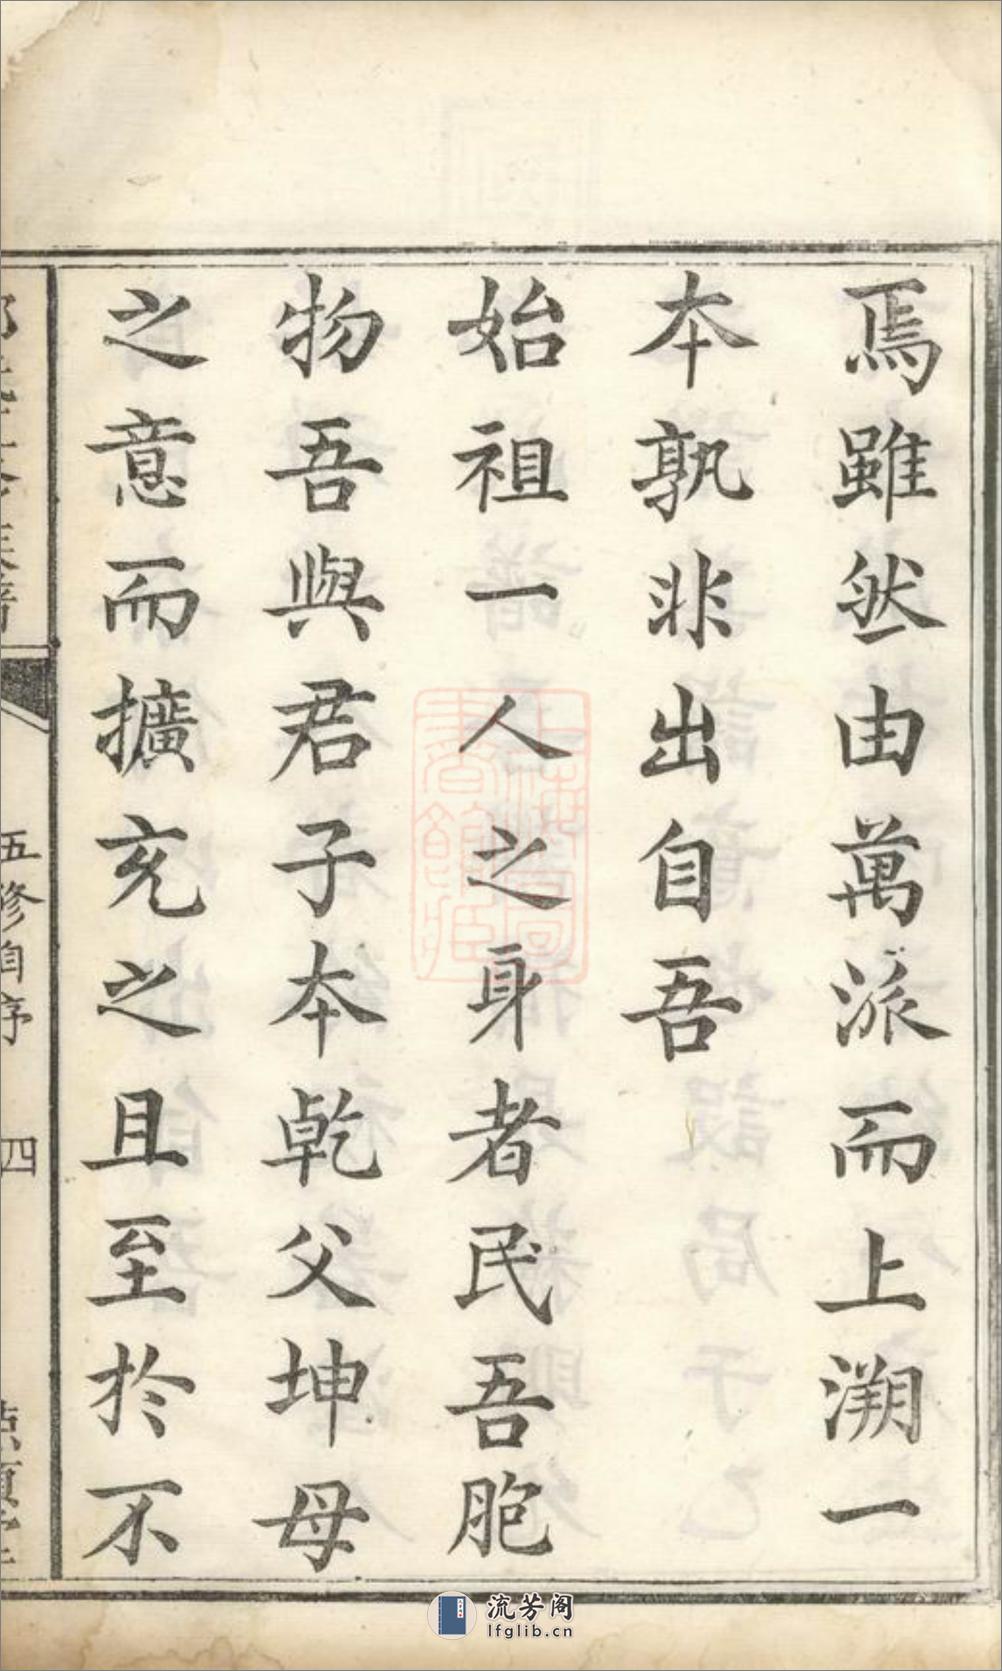 焉雖然由萬派而上溯一
本孰非出自吾
始祖一人之身者民吾胞
物吾與君子本乾父坤母
之意而擴充之且至於不
五修自序 四
流芳阁
lfglib.cn